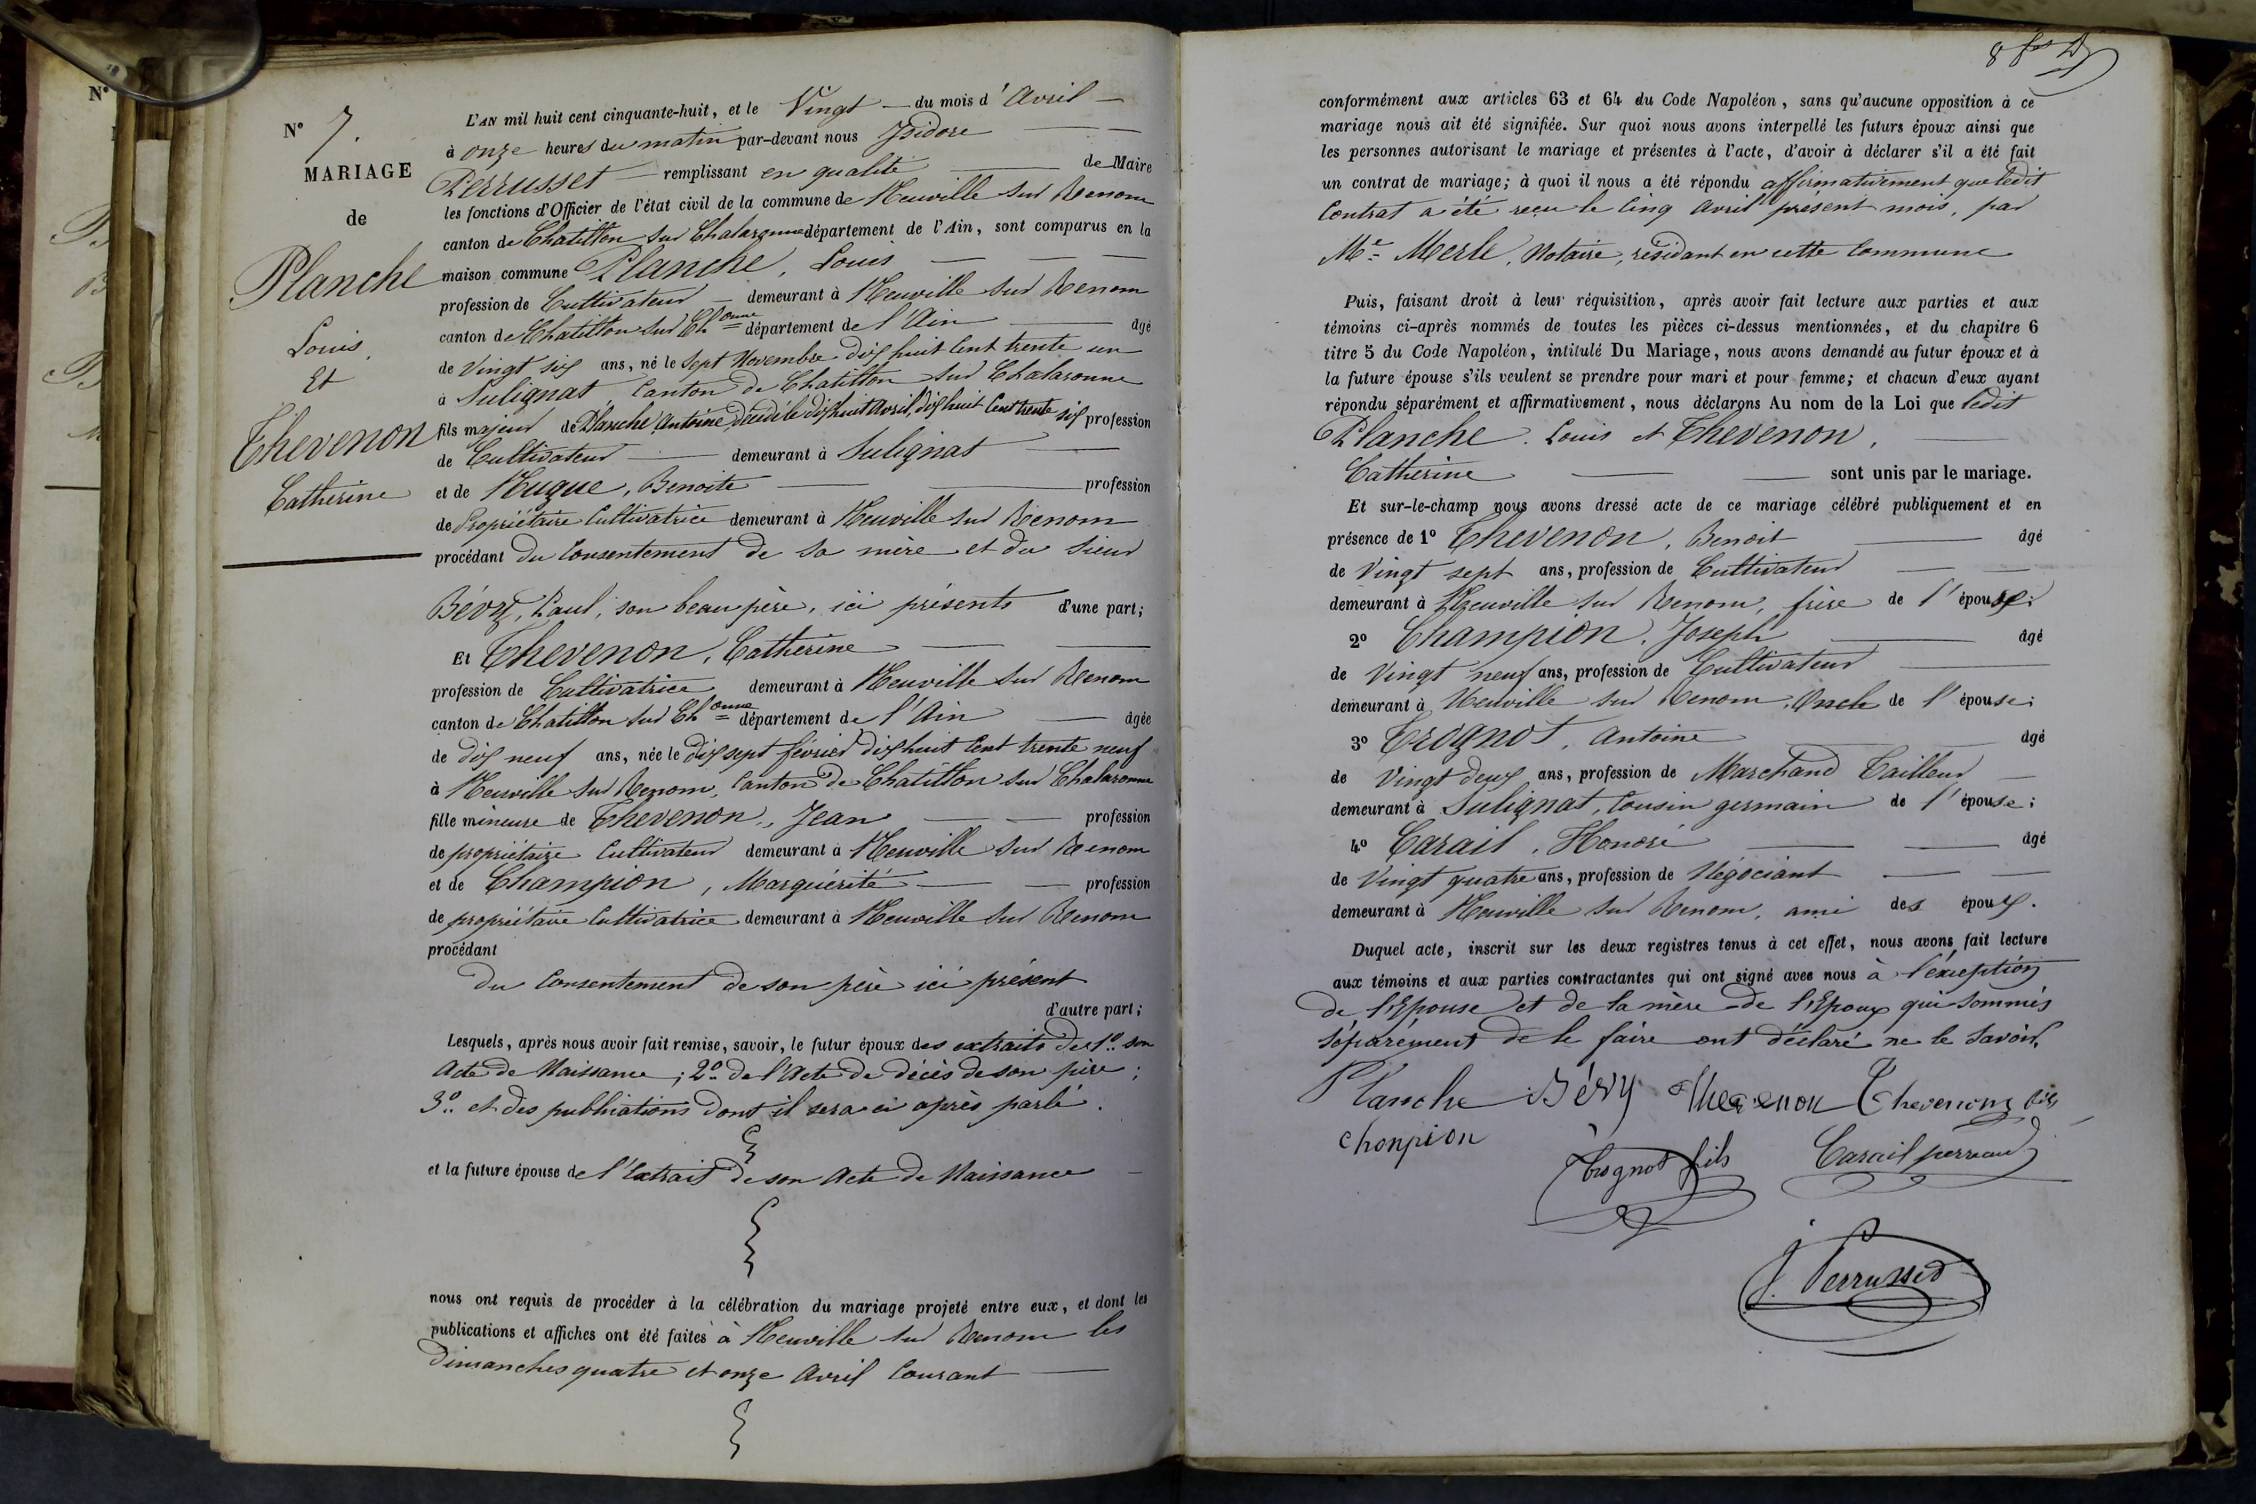 N°
N° 7.
MARIAGE
de
Planche
Louis
Et
Thevenon
Catherine
L'AN mil huit cent cinquante-huit, et le Vingt du mois d'Avril
à onze heures du matin par-devant nous Isidore
Perrusset remplissant en qualité de Maire
les fonctions d'Officier de l'état civil de la commune de Neuville sur Renom
canton de Chatillon sur Chalaronne département de l'Ain, sont comparus en la
maison commune Planche, Louis
profession de Cultivateur demeurant à Neuville sur Renom
canton de Chatillon sur Ch^onne département de l'Ain âgé
de Vingt six ans, né le sept Novembre dix huit Cent trente un
à Sulignat Canton de Chatillon sur Chalaronne
fils majeur de Planche Antoine, décédé le dix huit Avril, dix huit Cent trente six profession
de Cultivateur demeurant à Sulignat
et de Hugue, Benoite profession
de Propriétaire Cultivatrice demeurant à Neuville sur Renom
procédant du Consentement de sa mère et du sieur
Bévy, Paul, son beau père, ici présents d'une part;
Et Thevenon, Catherine
profession de Cultivatrice demeurant à Neuville sur Renom
canton de Chatillon sur Ch^onne département de l'Ain âgée
de dix neuf ans, née le dix sept février dix huit Cent trente neuf
à Neuville sur Renom, Canton de Chatillon sur Chalaronne
fille mineure de Thevenon, Jean profession
de propriétaire Cultivateur demeurant à Neuville sur Renom
et de Champion, Marguérité profession
de propriétaire Cultivatrice demeurant à Neuville sur Renom
procédant
du Consentement de son père ici présent
d'autre part;
Lesquels, après nous avoir fait remise, savoir, le futur époux des extraits de 1° son
Acte de Naissance; 2° de l'Acte de décès de son père;
3° et des publications dont il sera ci après parlé.
et la future épouse de l'Extrait de son Acte de Naissance
nous ont requis de procéder à la célébration du mariage projeté entre eux, et dont les
publications et affiches ont été faites à Neuville sur Renom les
Dimanches quatre et onze Avril Courant
8
conformément aux articles 63 et 64 du Code Napoléon, sans qu'aucune opposition à ce
mariage nous ait été signifiée. Sur quoi nous avons interpellé les futurs époux ainsi que
les personnes autorisant le mariage et présentes à l'acte, d'avoir à déclarer s'il a été fait
un contrat de mariage; à quoi il nous a été répondu affirmativement que ledit
Contrat a été reçu le Cinq Avril présent mois, par
M^e Merle, Notaire, résidant en cette Commune
Puis, faisant droit à leur réquisition, après avoir fait lecture aux parties et aux
témoins ci-après nommés de toutes les pièces ci-dessus mentionnées, et du chapitre 6
titre 5 du Code Napoléon, intitulé Du Mariage, nous avons demandé au futur époux et à
la future épouse s'ils veulent se prendre pour mari et pour femme; et chacun d'eux ayant
répondu séparément et affirmativement, nous déclarons Au nom de la Loi que ledit
Planche. Louis et Thevenon,
Catherine sont unis par le mariage.
Et sur-le-champ nous avons dressé acte de ce mariage célébré publiquement et en
présence de 1° Thevenon, Benoit âgé
de Vingt sept ans, profession de Cultivateur
demeurant à Neuville sur Renom, frère de l'épouse;
2° Champion, Joseph âgé
de Vingt neuf ans, profession de Cultivateur
demeurant à Neuville sur Renom, Oncle de l'épouse;
3° Trognot, Antoine âgé
de Vingt deux ans, profession de Marchand Tailleur
demeurant à Sulignat, Cousin germain de l'épouse;
4° Carail, Honoré âgé
de Vingt quatre ans, profession de Négociant
demeurant à Neuville sur Renom, ami des époux.
Duquel acte, inscrit sur les deux registres tenus à cet effet, nous avons fait lecture
aux témoins et aux parties contractantes qui ont signé avec nous à l'exception
de l'Epouse et de la mère de l'Epoux qui sommés
séparément de le faire ont déclaré ne le savoir.
Planche Bévy Thevenon Thevenon fils
Chonpion
Trognot fils Carail perraud
J. Perrusset